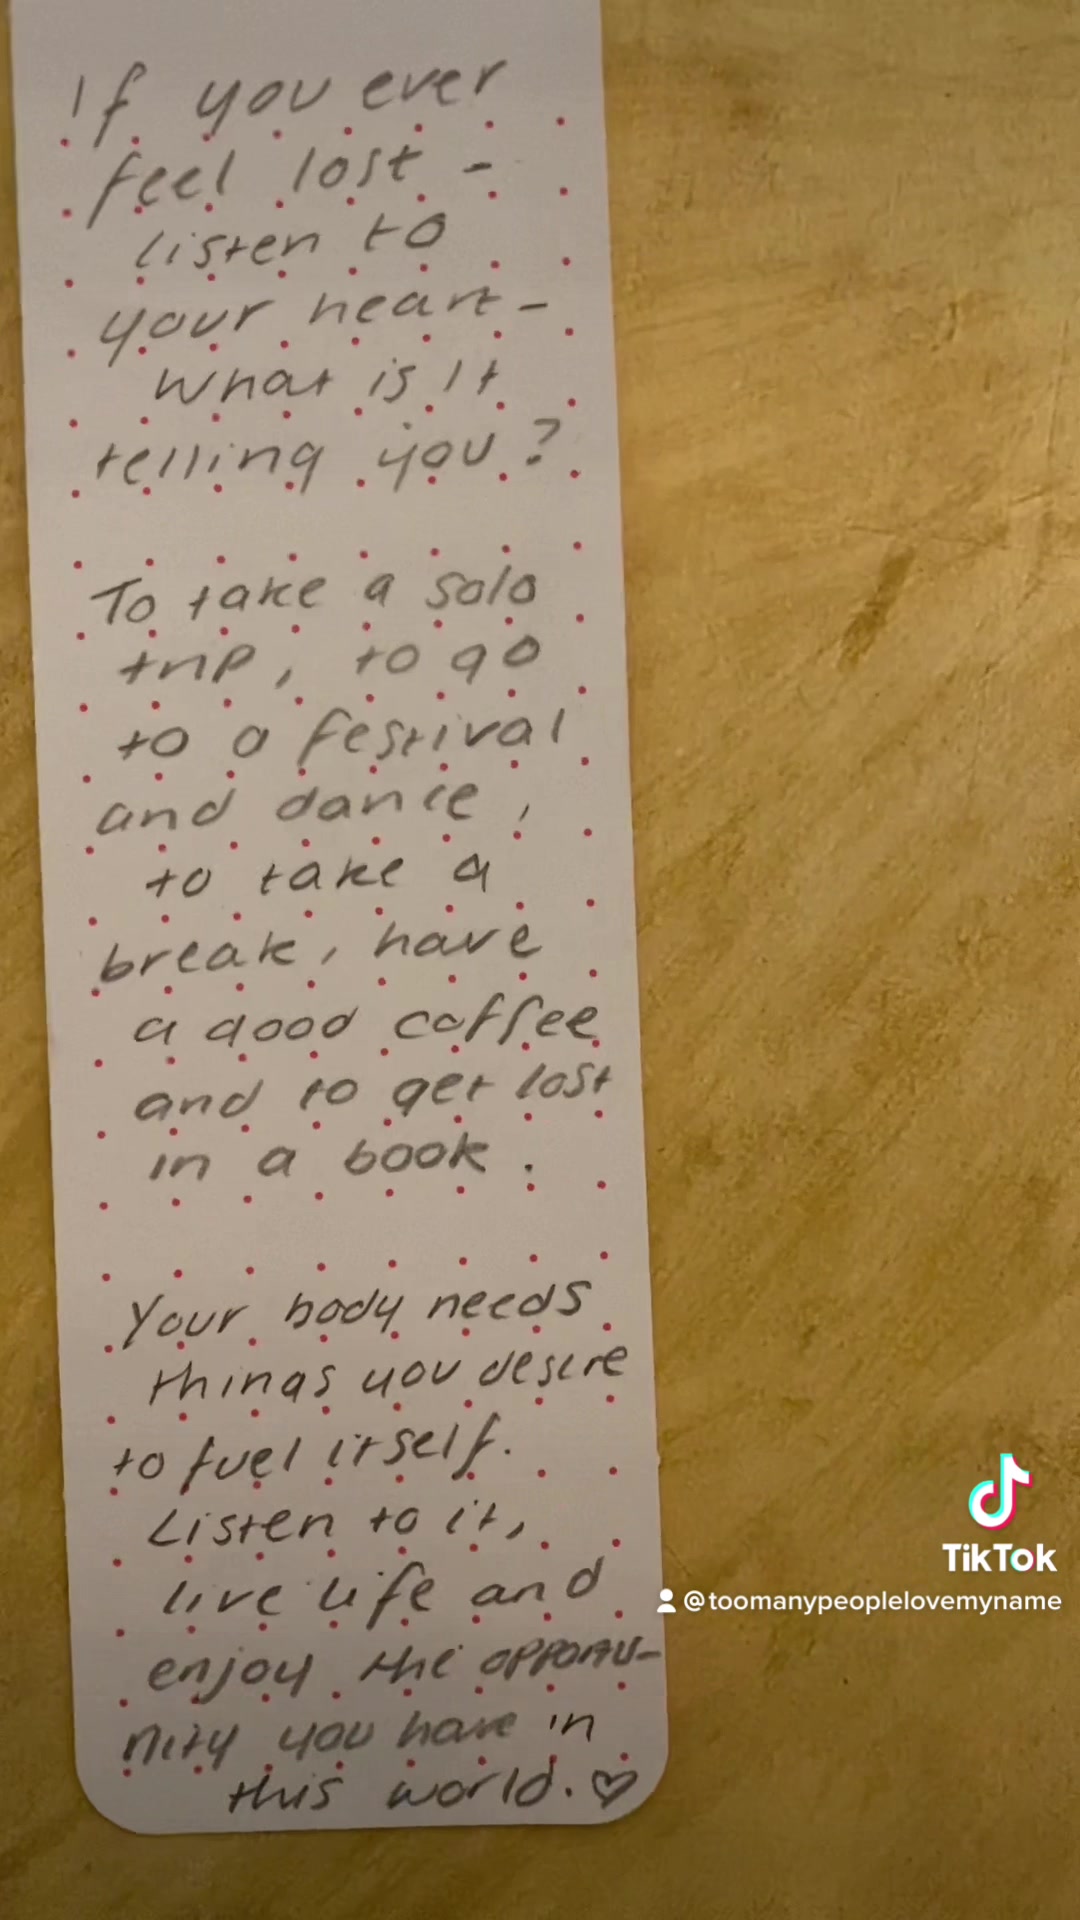 If you ever
feel lost -
listen to
your heart -
What is it
telling you?
To take a solo
trip, to go
to a festival
and dance,
to take a
break, have
a good coffee
and to get lost
in a book.
Your body needs
things you desire
to fuel itself.
Listen to it,
live life and
enjoy the opportu-
nity you have in
this world. ♡
TikTok
@toomanypeoplelovemyname